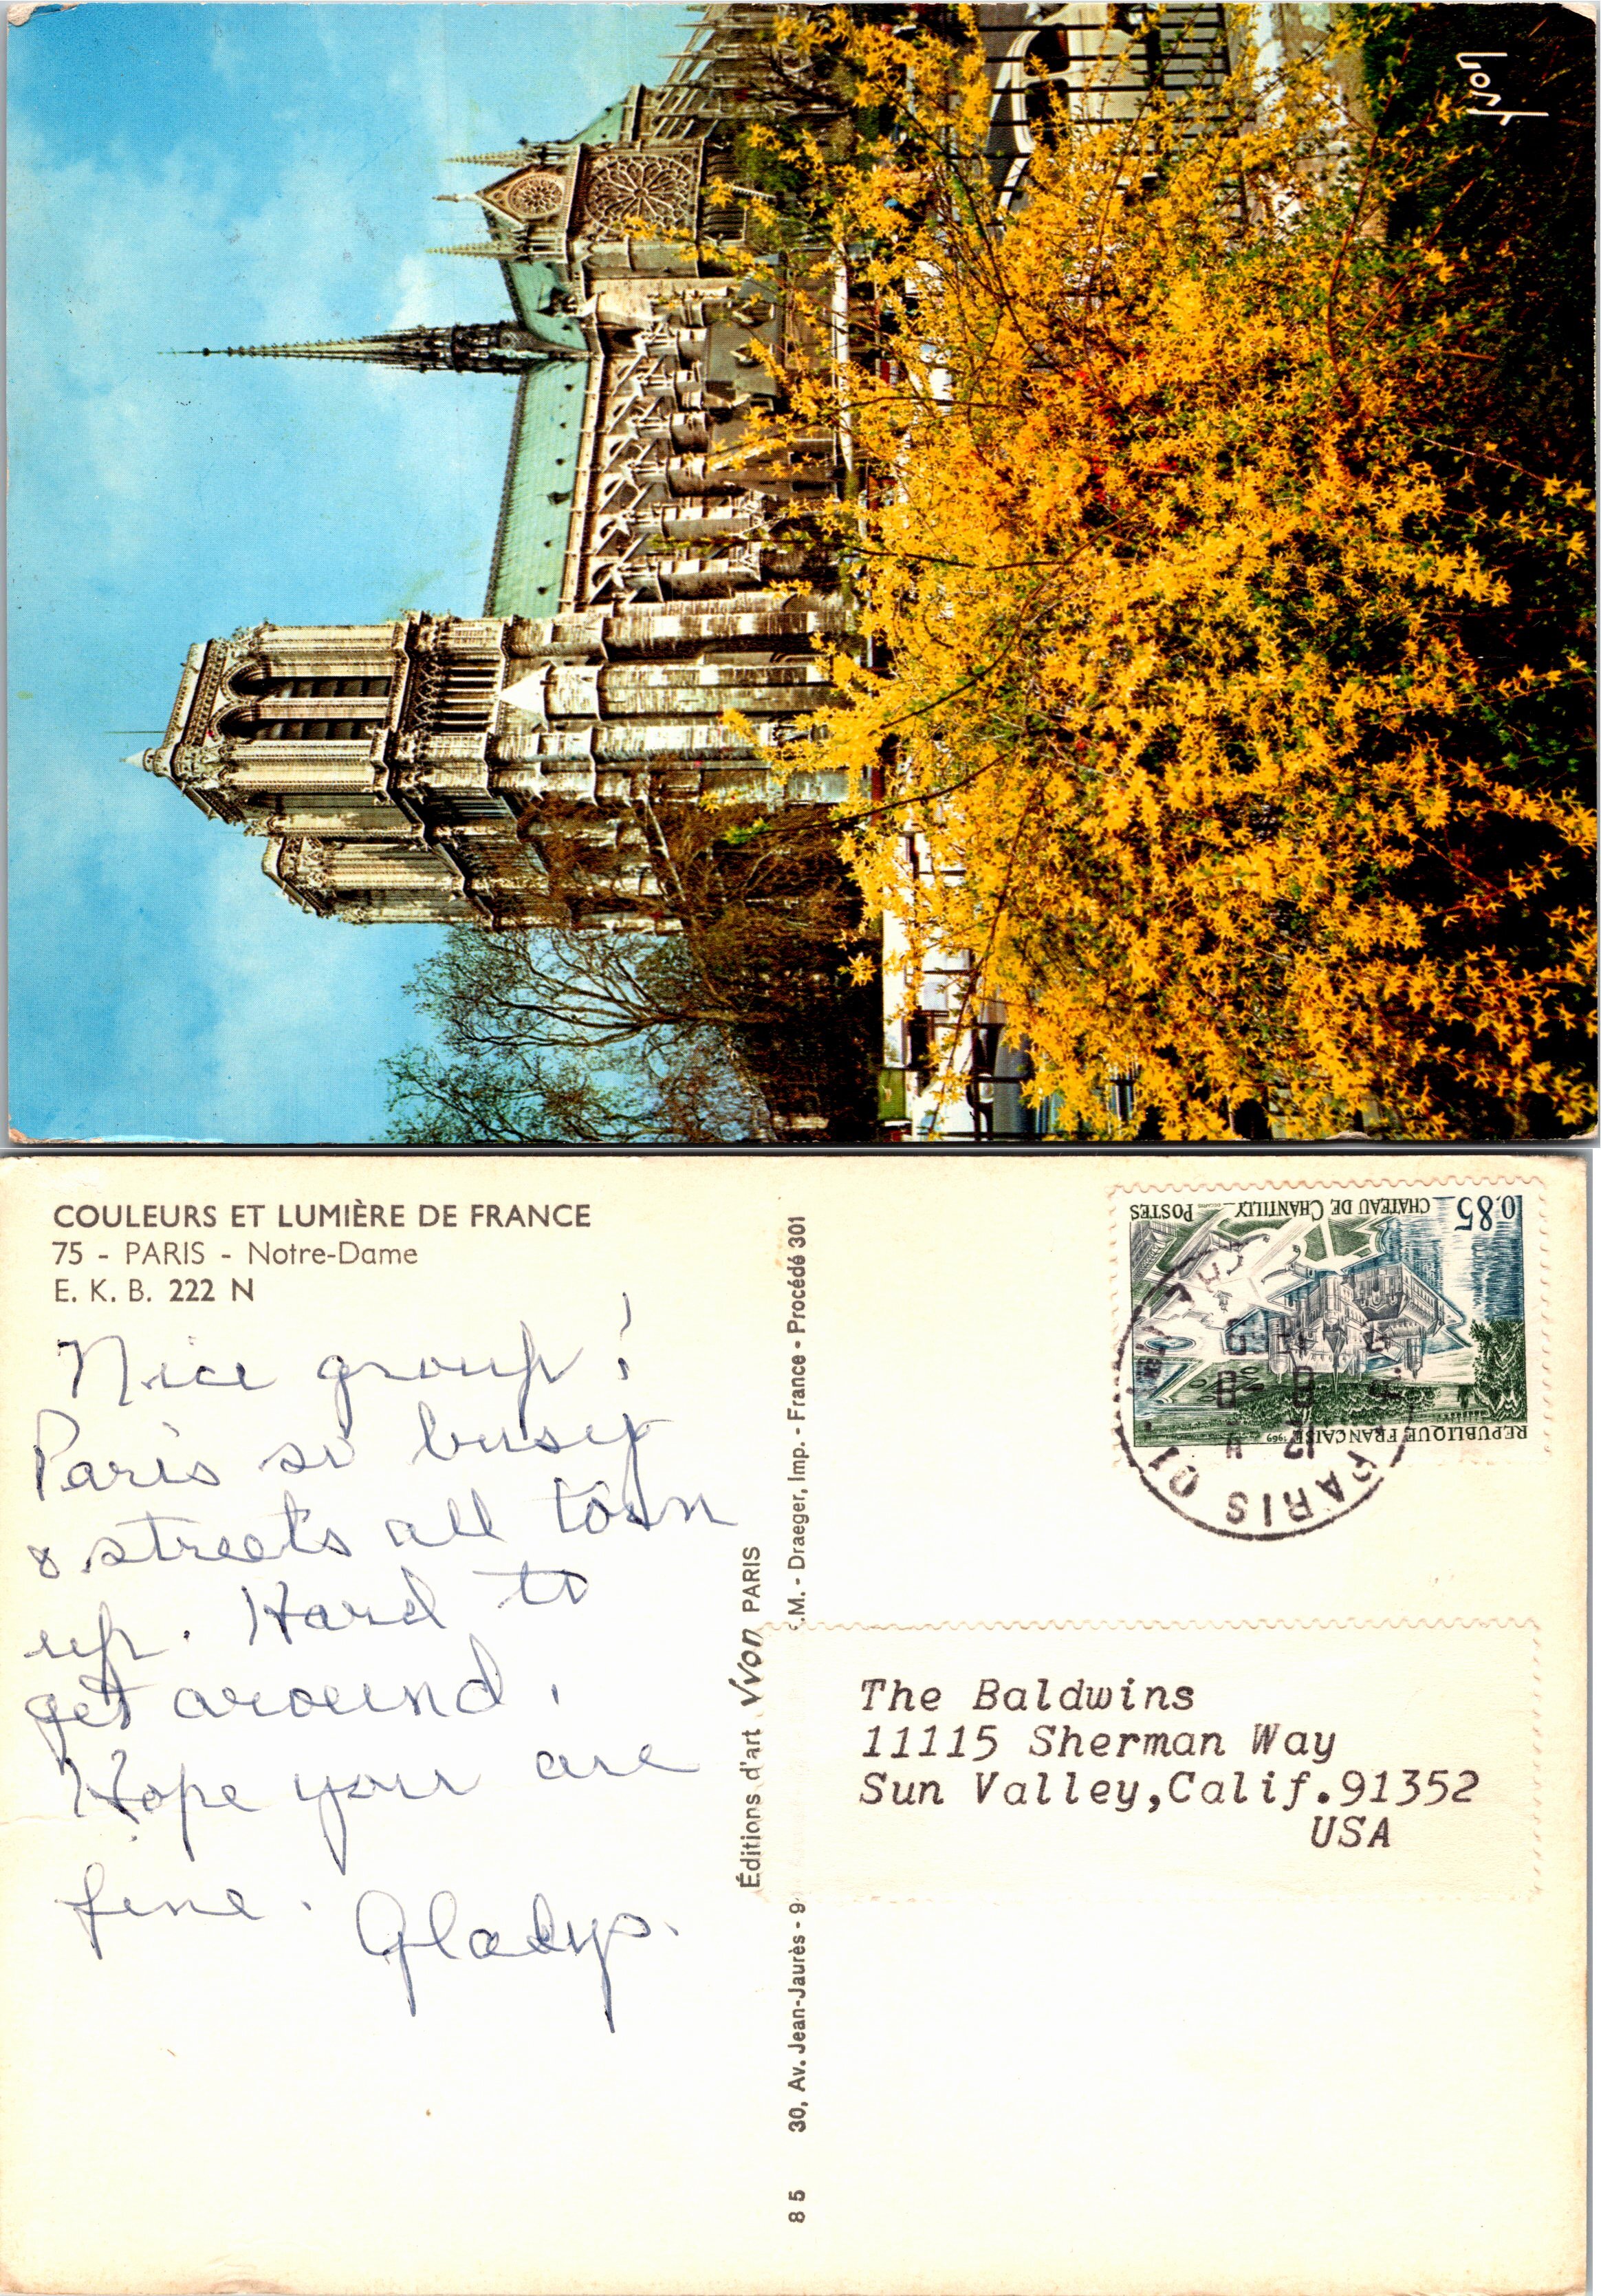 yvon
COULEURS ET LUMIÈRE DE FRANCE
75 - PARIS - Notre-Dame
E. K. B. 222 N
Nice group!
Paris so busy
& streets all torn
up. Hard to
get around.
Hope your are
fine.
Gladys.
Éditions d'art Yvon PARIS
8 5 30, Av. Jean-Jaurès - 9
.M. - Draeger, Imp. - France - Procédé 301
0,85
CHATEAU DE CHANTILLY POSTES
REPUBLIQUE FRANÇAISE 1969
PARIS 01
The Baldwins
11115 Sherman Way
Sun Valley,Calif.91352
USA